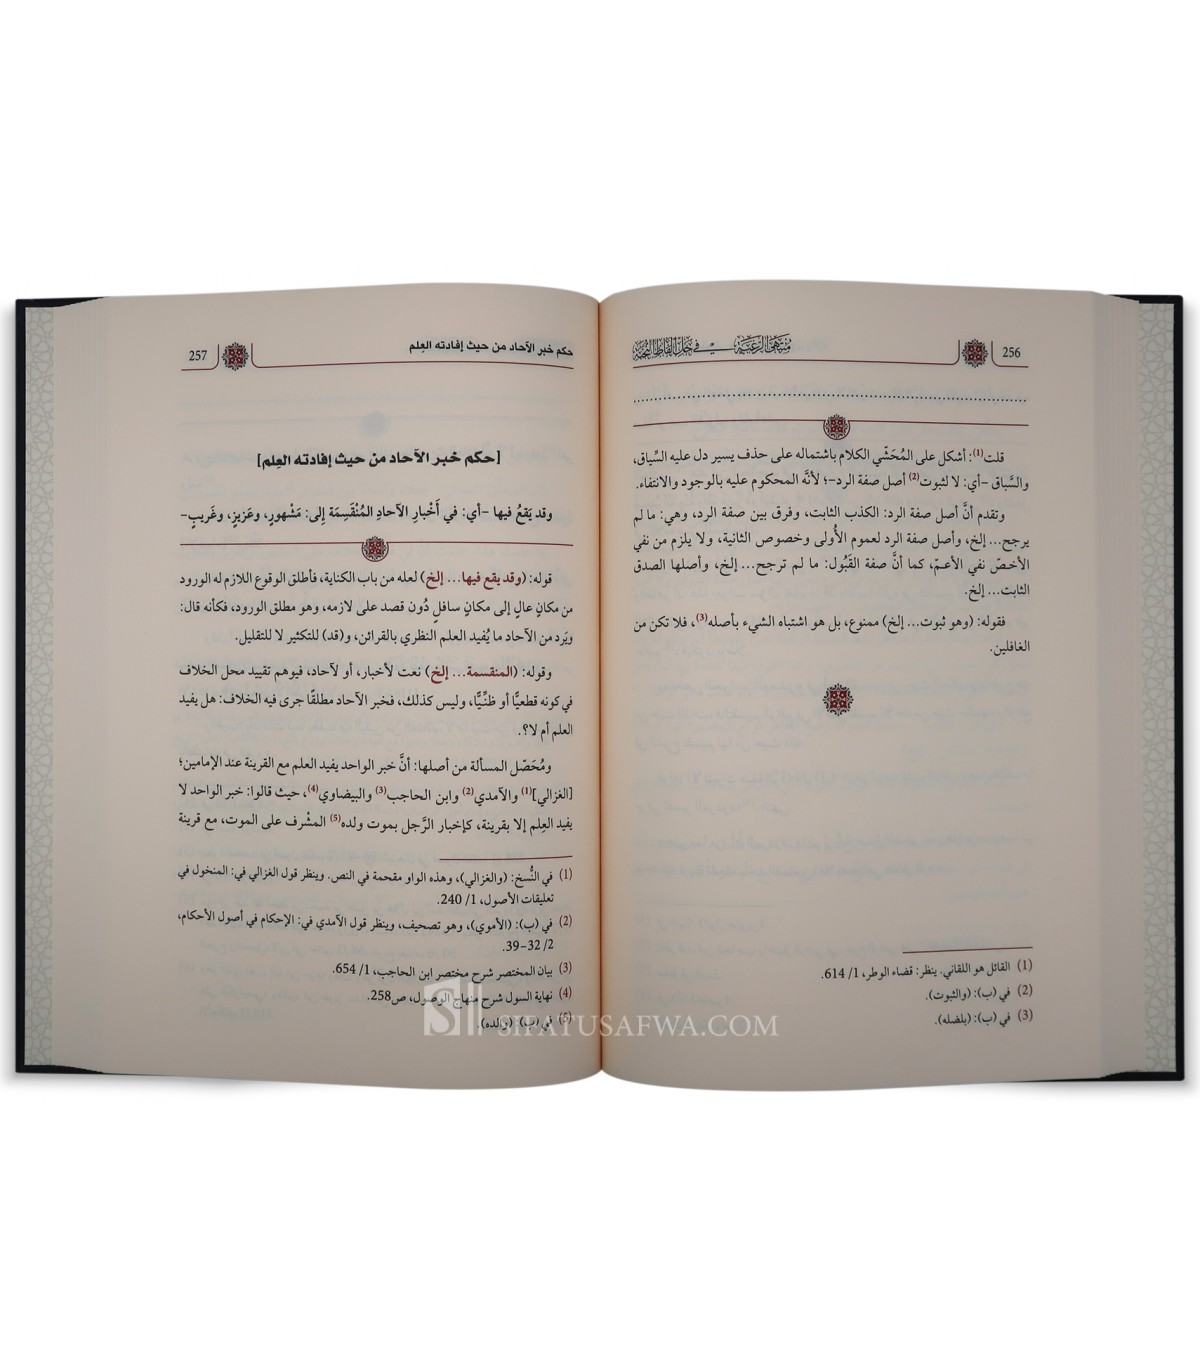 256
منتهى الرغبة في حل ألفاظ النخبة
قلت(1): أشكل على المُحَشّي الكلام باشتماله على حذف يسير دل عليه السِّياق،
والسَّباق -أي: لا لثبوت(2) أصل صفة الرد-؛ لأنَّه المحكوم عليه بالوجود والانتفاء.
وتقدم أنَّ أصل صفة الرد: الكذب الثابت، وفرق بين صفة الرد، وهي: ما لم
يرجح... إلخ، وأصل صفة الرد لعموم الأُولى وخصوص الثانية، ولا يلزم من نفي
الأخصّ نفي الأعمّ، كما أنَّ صفة القَبُول: ما لم ترجح... إلخ، وأصلها الصدق
الثابت... إلخ.
فقوله: (وهو ثبوت... إلخ) ممنوع، بل هو اشتباه الشيء بأصله(3)، فلا تكن من
الغافلين.
(1) القائل هو اللقاني. ينظر: قضاء الوطر، 1/ 614.
(2) في (ب): (والثبوت).
(3) في (ب): (بلضله).
حكم خبر الآحاد من حيث إفادته العِلم
257
[حكم خبر الآحاد من حيث إفادته العِلم]
وقد يَقعُ فيها -أي: في أَخْبارِ الآحادِ المُنْقَسِمَة إِلى: مَشْهورٍ، وعَزيزٍ، وغَريبٍ-
قوله: (وقد يقع فيها... إلخ) لعله من باب الكناية، فأطلق الوقوع اللازم له الورود
من مكانٍ عالٍ إلى مكانٍ سافلٍ دُون قصد على لازمه، وهو مطلق الورود، فكأنه قال:
ويَرد من الآحاد ما يُفيد العلم النظري بالقرائن، و(قد) للتكثير لا للتقليل.
وقوله: (المنقسمة... إلخ) نعت لأخبار، أو لآحاد، فيوهم تقييد محل الخلاف
في كونه قطعيًّا أو ظنِّيًّا، وليس كذلك، فخبر الآحاد مطلقًا جرى فيه الخلاف: هل يفيد
العلم أم لا؟.
ومُحَصّل المسألة من أصلها: أنَّ خبر الواحد يفيد العلم مع القرينة عند الإمامين؛
[الغزالي](1) والآمدي(2) وابن الحاجب(3) والبيضاوي(4)، حيث قالوا: خبر الواحد لا
يفيد العِلم إلا بقرينة، كإخبار الرَّجل بموت ولده(5) المشْرف على الموت، مع قرينة
(1) في النُّسخ: (والغزالي)، وهذه الواو مقحمة في النص. وينظر قول الغزالي في: المنخول في
تعليقات الأصول، 1/ 240.
(2) في (ب): (الأموي)، وهو تصحيف، وينظر قول الآمدي في: الإحكام في أصول الأحكام،
2/ 32-39.
(3) بيان المختصر شرح مختصر ابن الحاجب، 1/ 654.
(4) نهاية السول شرح منهاج الوصول، ص258.
(5) في (ب): (والده).
SIFATUSAFWA.COM